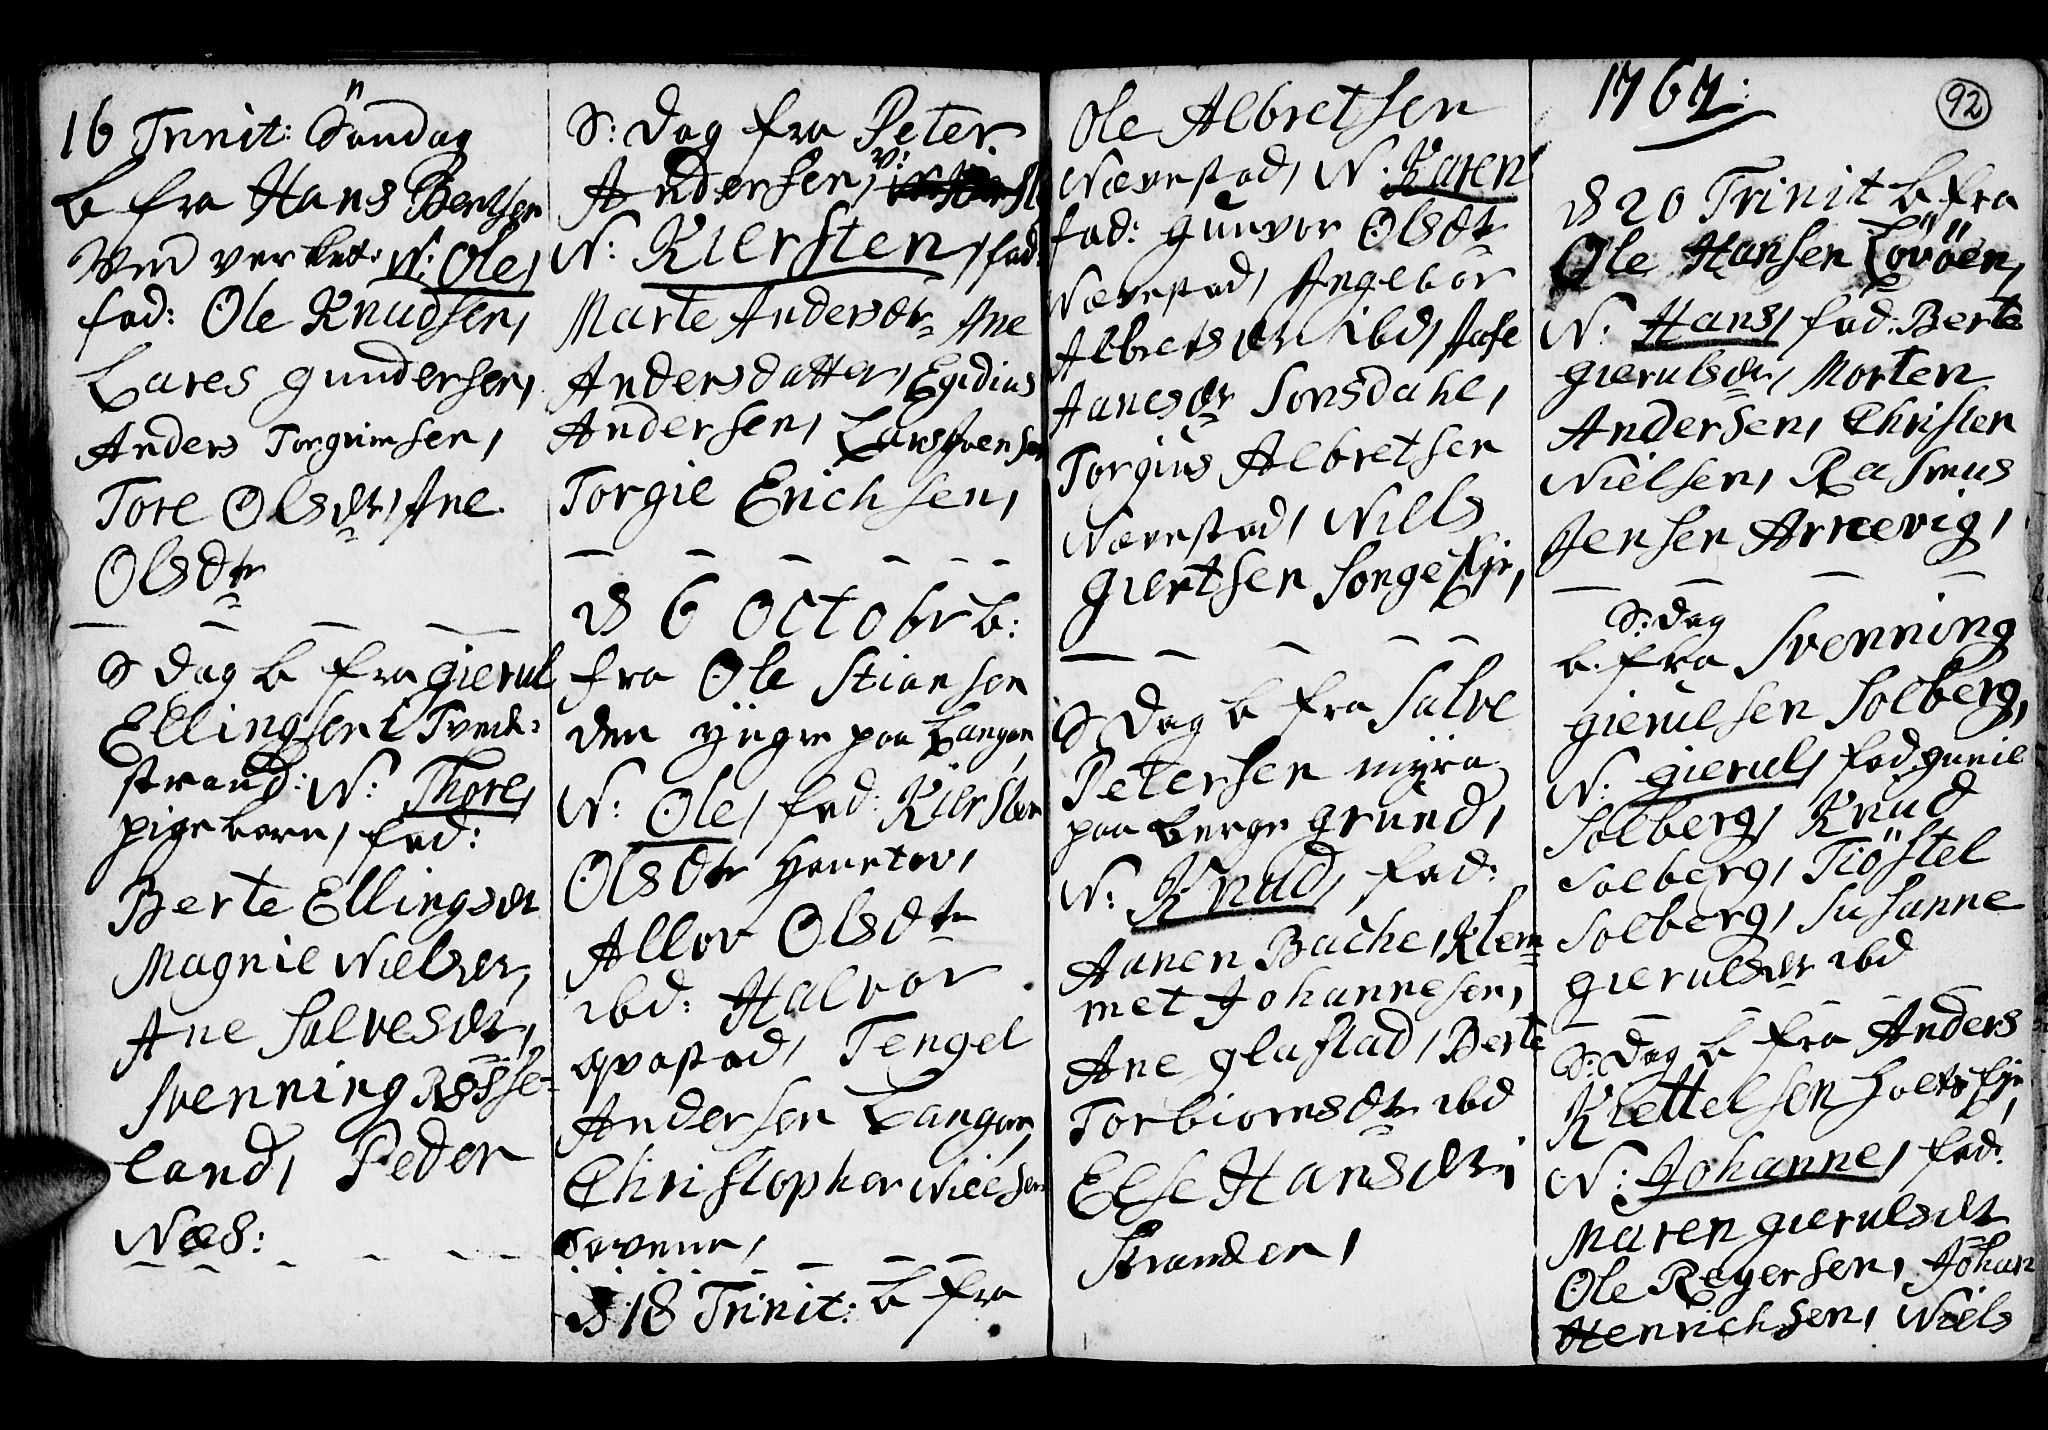 16 Trinit: Söndag
b fra Hans Bentsen
Ved verket. N: Ole,
fad: Ole Knudsen,
Lares gundersen,
Anders Torgrimsen,
Tore Olsdtr, Ane
Olsdtr
S dag b fra gierul
Ellingsen i Tvede-
strand: N: Thore,
pige barn, fad:
Berte Ellingsdtr
Magnil Nielsdtr,
Ane Salvesdtr,
Svenning Røsse-
land, Peder
Næs:
S: dag fra Peter
Andersen, v:
N: Kiersten, fad:
Marte Andersdtr Ane
Andersdatter, Egidius
Andersen, Lars Svensen
Torgie Erichsen,
d 6 Octobr b:
fra Ole Stiansen
den yngre paa Langøe,
N: Ole, fad: Kiersten
Olsdtr Hanetov,
Allov Olsdtr
ibd: Halvor
qvastad, Tengel
Andersen Langøe,
Christopher Nielsen
d 18 Trinit: b fra
Ole Albretsen
Nævestad, N. Karen
fad: gunvor Olsdtr
Nævestad, Angebor
Albretsdtr ibd, Aase
Aanesdtr Sonsdahl,
Torgius Albretsen
Nævestad, Niels
giertsen Songe Ejr,
S Dag b fra Salve
Petersen myra
paa berge grund,
N: Knud, fad:
Aanen Bache, Klem-
met Johannesen,
Ane glastad, Berte
Torbiornsdtr ibd
Else Hansdtr i
Stranden,
1767:
92
d 20 Trinit b fra
Ole Hansen Lövöen,
N: Hans, fad: Berte
gierulsdtr, Morten
Andersen, Christen
Nielsen, Rasmus
Jensen Arnevig,
S: dag
b. fra Svenning
gierulsen Solberg,
N: gierul, fad gunil
Solberg, Knud
Solberg, Tiöstel
Solberg, Susanne
gierulsdtr ibd
S: dag b fra Anders
Kiettelsen Holts Ejr,
N: Johanne, fad:
Maren gierulsdtr
Ole Regersen, Johan
Henrichsen, Niels